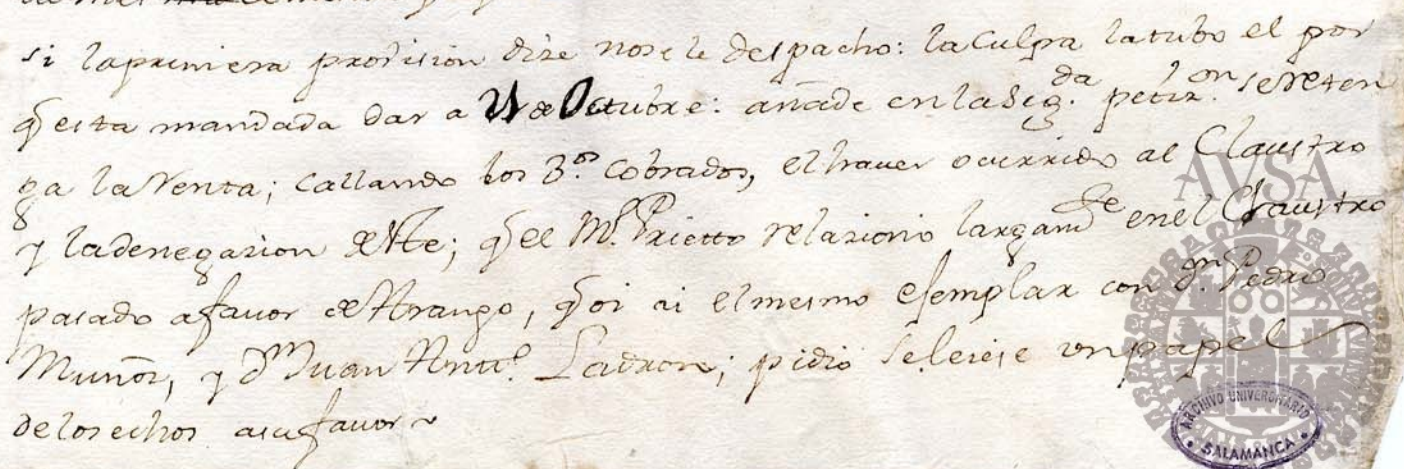 si la primera provision dize no se le despacho: la culpa la tubo el por
q esta mandada dar a 21 de Octubre: añade en la seg.da petiz.on se reten
ga la Venta; callando los 3.os cobrados, el haver ocurrido al Claustro
y la denegazion deste; q el M.o Prietto relaziono largam.te en el Claustro
pasado a favor de Arango, q oi ai el mesmo exemplar con D.n Pedro
Munoz, y D.n Juan Ant.o Ladron; pidio se leiese un papel
de los echos a su favor
AVSA
ARCHIVO UNIVERSITARIO
SALAMANCA